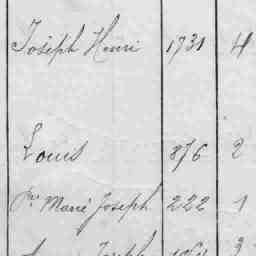 Joseph Henri 1731 4
Louis 876 2
Pre Marie Joseph 222 1
Joseph 3